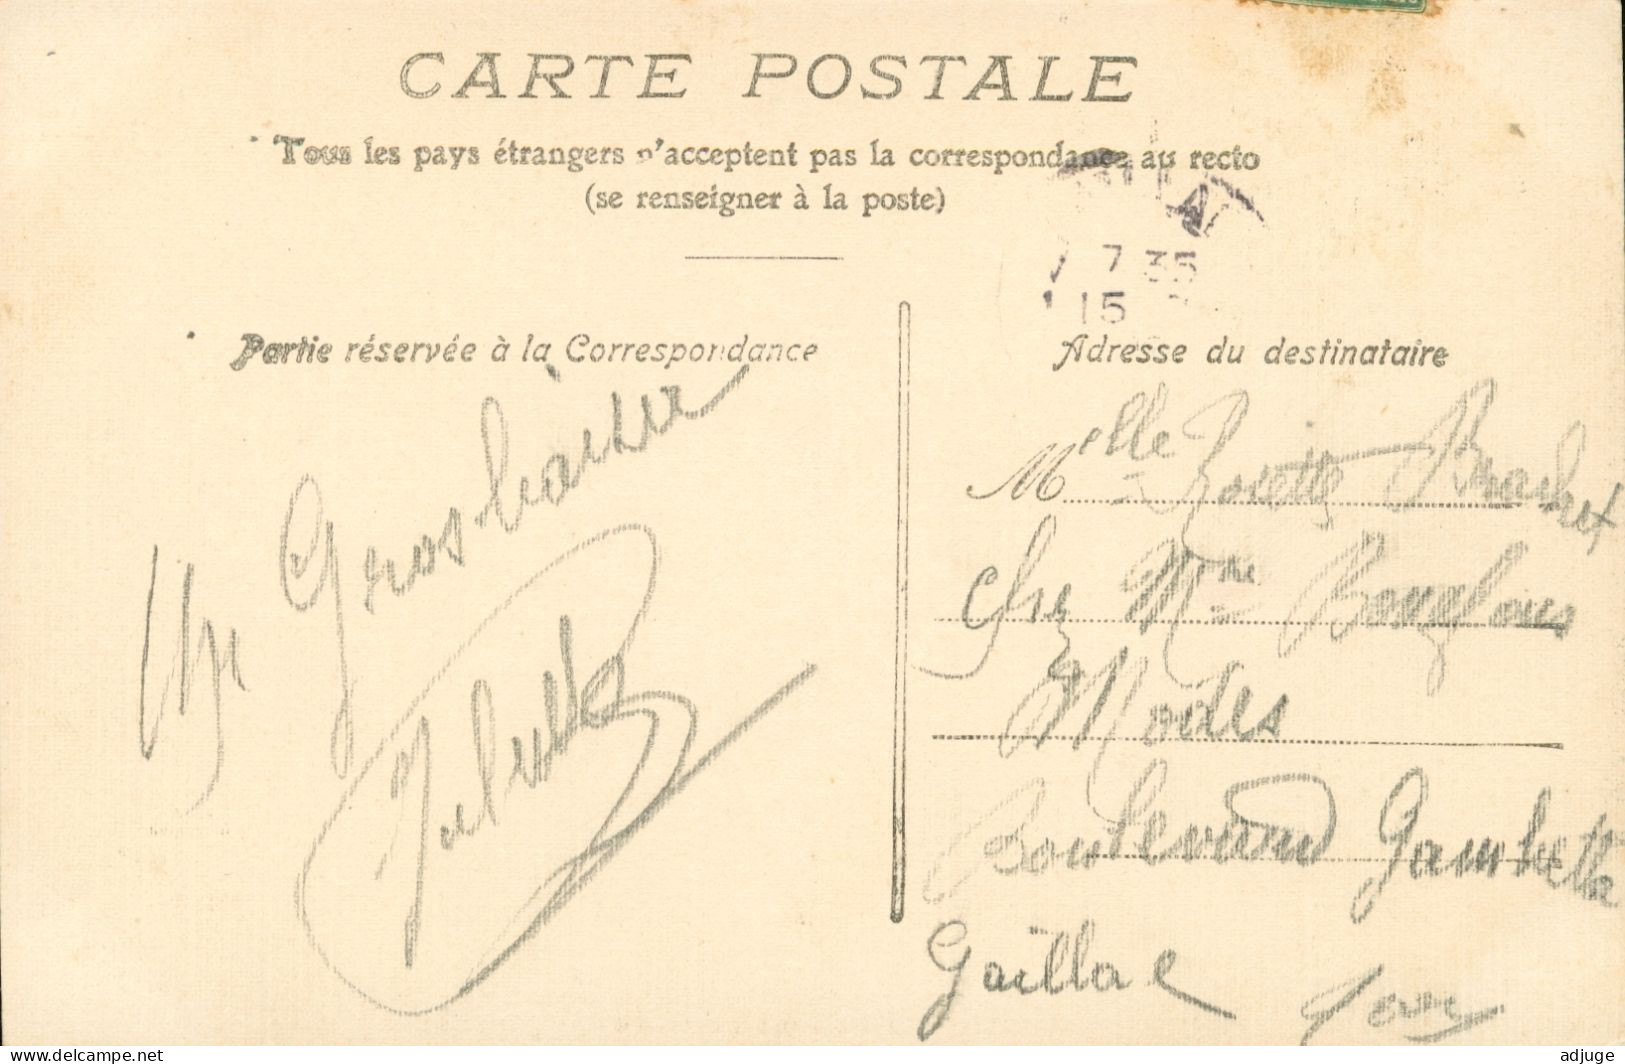 CARTE POSTALE
Tous les pays étrangers n'acceptent pas la correspondance au recto
(se renseigner à la poste)
7 35
15
Partie réservée à la Correspondance
Adresse du destinataire
Melle
Chez Mme
Modes
Boulevard Gambetta
Gaillac Tarn
Un Gros
www.delcampe.net
adjuge